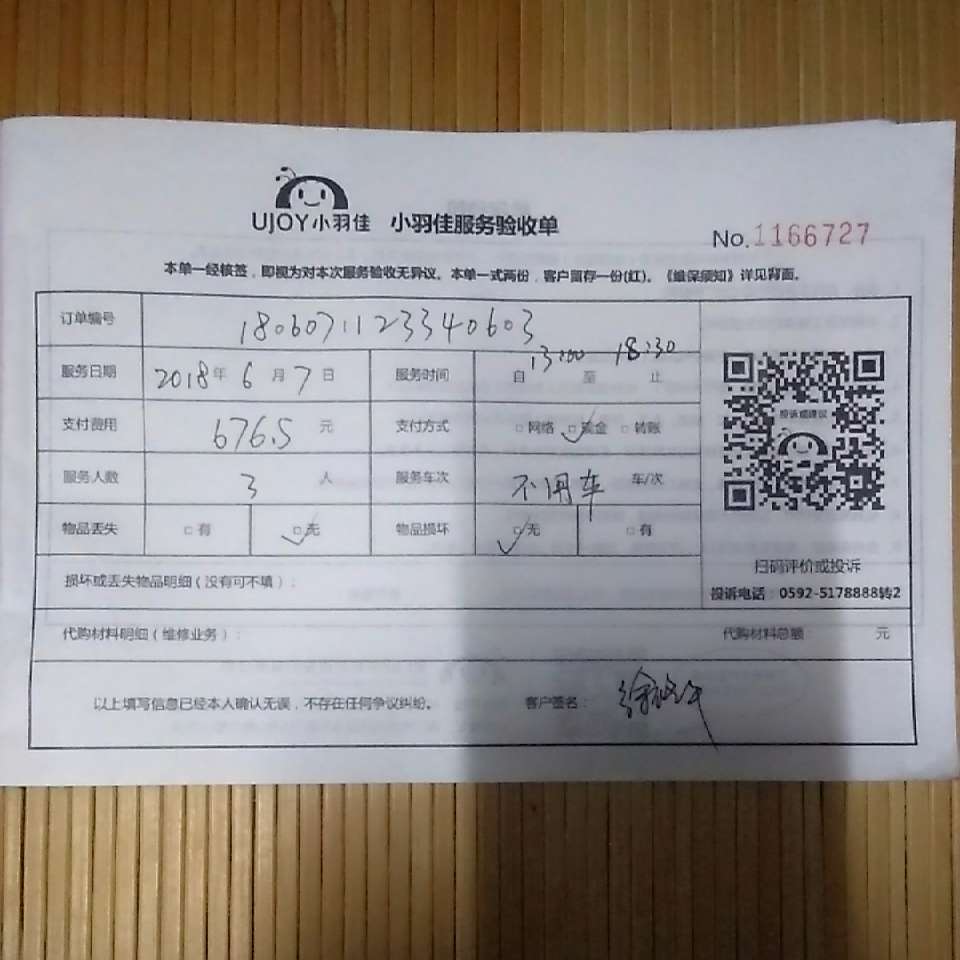 UJOY小羽佳 小羽佳服务验收单
No.1166727
本单一经核签，即视为对本次服务验收无异议。本单一式两份，客户留存一份(红)。《维保须知》详见背面。
订单编号 1806071123340603
服务日期 2018年 6 月 7 日 服务时间 自 13:00 至 18:30 止
支付费用 676.5 元 支付方式 □网络 □现金 □转账
服务人数 3 人 服务车次 不用车 车/次
物品丢失 □有 □无 物品损坏 □无 □有
投诉或建议
扫码评价或投诉
投诉电话：0592-5178888转2
损坏或丢失物品明细（没有可不填）：
代购材料明细（维修业务）： 代购材料总额： 元
以上填写信息已经本人确认无误，不存在任何争议纠纷。 客户签名：